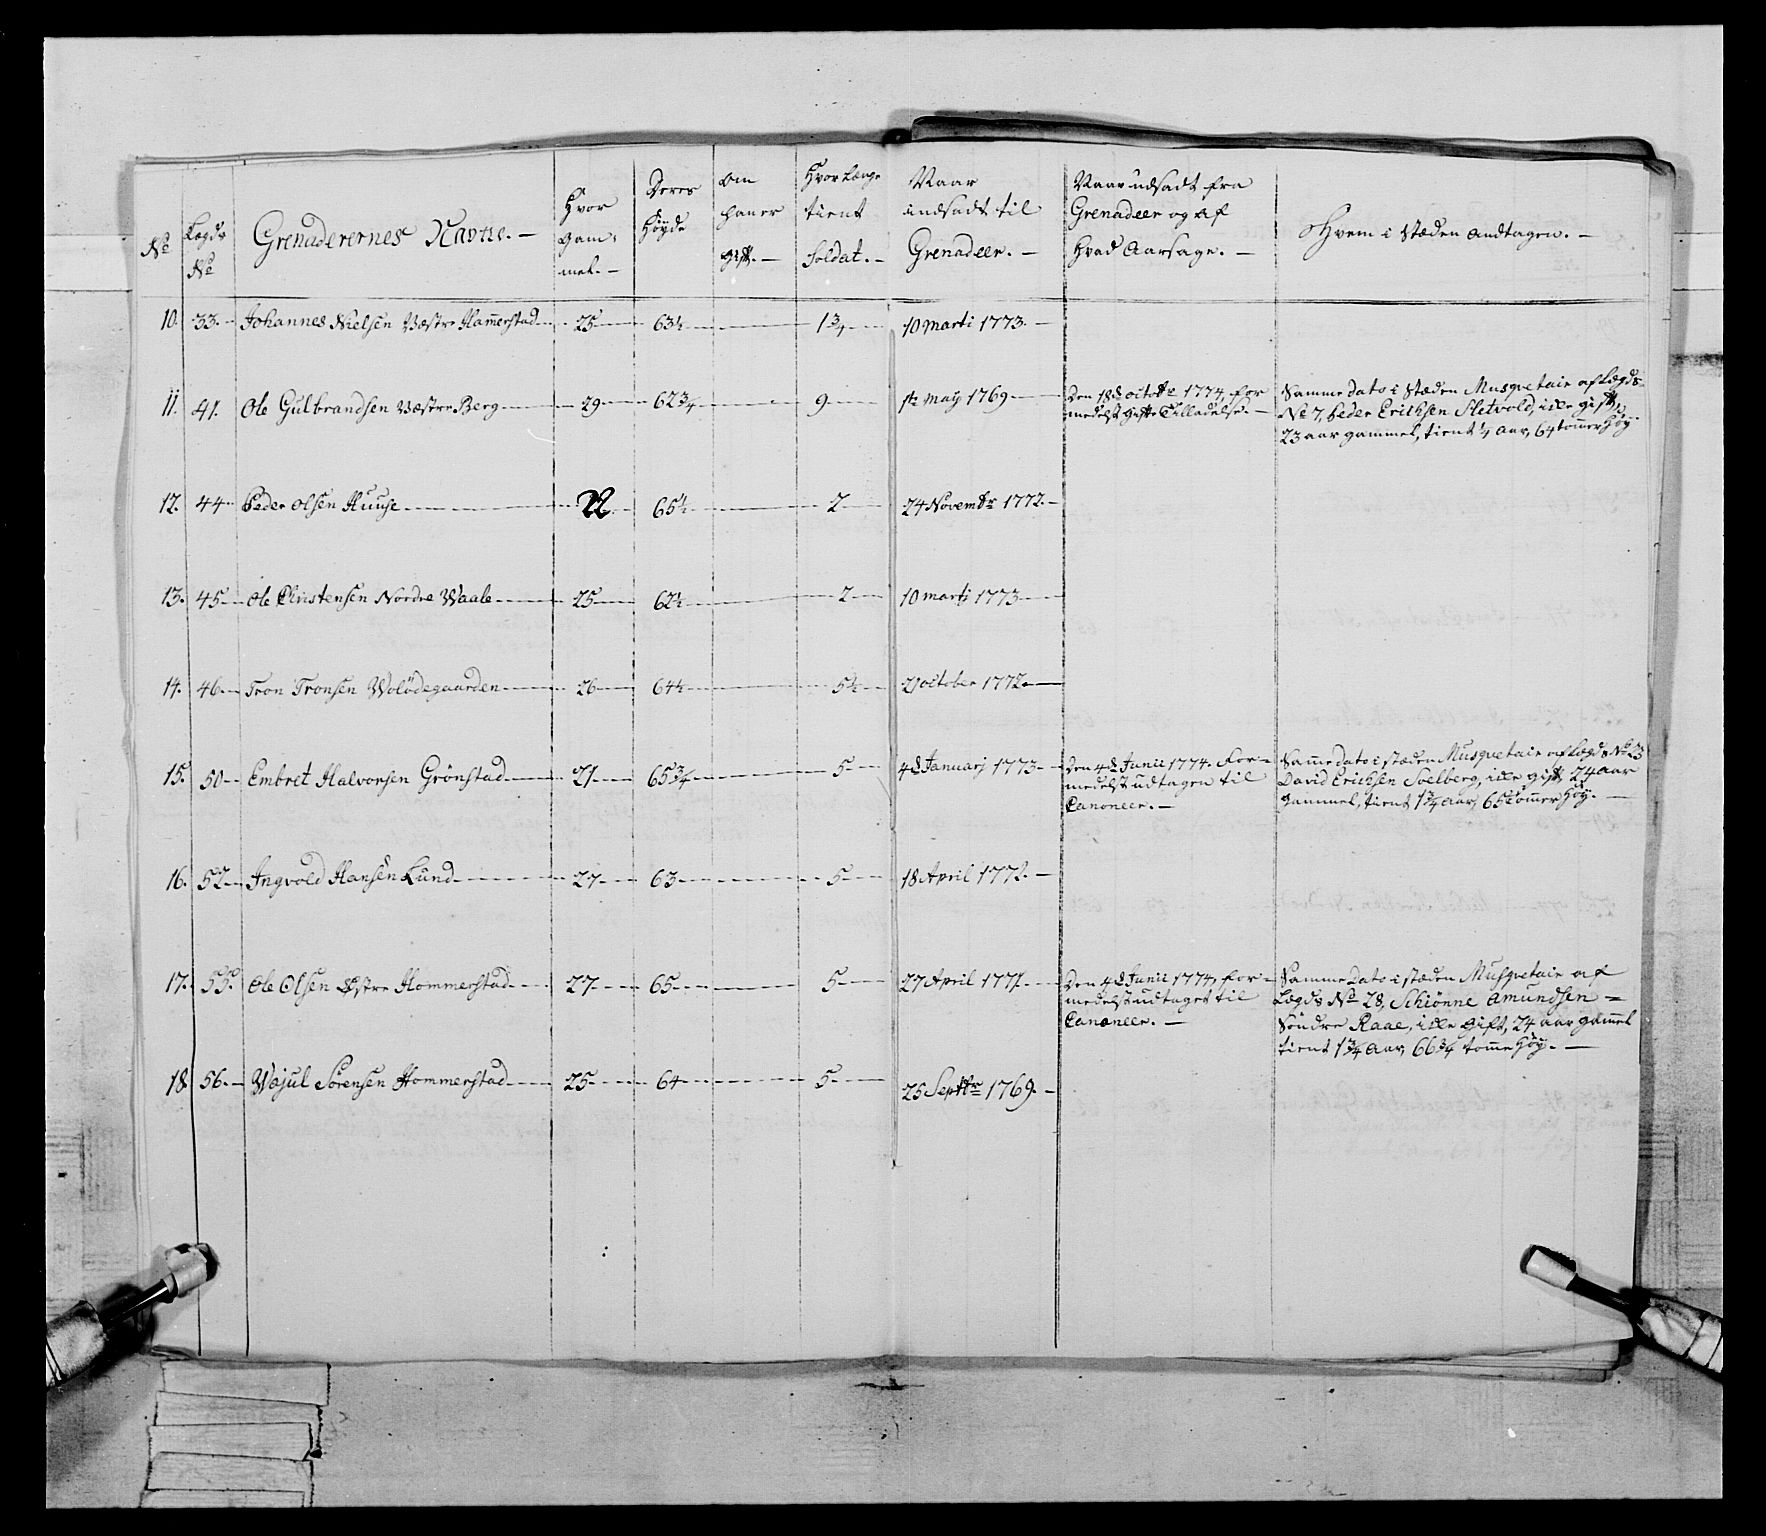 No
Lægds No
Grenaderernes Navne. —
Hvor gam: mel. —
Deres Høyde
Om han er gift. —
Hvor Længe tient Soldat. —
Naar indsadt til Grenadeer. —
Naar udsadt fra Grenadeer og af hvad Aarsage. —
Hvem i Stæden andtagen. —
10. 33. Johannes Nielsen Væstre Hamerstad 25 63½ 1¾ 10 Marti 1773. —
11. 41. Ole Gulbrandsen Væstre Berg 29 62¾ 9 1te May 1769 Den 18d octobr 1774, for
medelst Gifte Tilladelse. —
Samme Dato i Stæden Musqvetair af Lægds
No 7, Peder Erichsen Sletvold, ikke gift,
23 aar gammel, tient ¼ Aar, 64 tommer Høy.
12. 44 Peder Olsen Huuse 22 65½ 2 24 Novembr 1772. —
13. 45 Ole Christensen Nordre Waale 25 62½ 2 10 Martj 1773
14. 46. Tron Tronsen Wolødegaarden 26 64½ 5½ 21 october 1772. —
15. 50 Embret Halvorsen Grönstad 21 65¾ 5 4d Januarj 1773 Den 4d Junii 1774. For=
medelst udtagen til
Canoneer. —
Samme Dato i stæden Musqvetair af Lægds No 23
David Erichsen Soelberg, ikke gift, 24 aar
gammel, tient 1¾ aar, 65 tommer Høy. —
16. 52 Ingvold Hansen Lund 27 63 5 18 April 1772. —
17. 55. Ole Olsen Østre Hommerstad 27 65 5 27 April 1771. Den 4d Junii 1774, for=
medelst udtaget til
Canoneer. —
Samme Dato i stæden Musqvetair af
Lægds No 28, Schiønne Amundsen =
Söndre Raae, ikke Gift, 24 aar gamel
tient 1¾ Aar, 66¾ tomme Høy. —
18 56. Wajul Sörensen Hommerstad 25 64 5 25 Septbr 1769. —